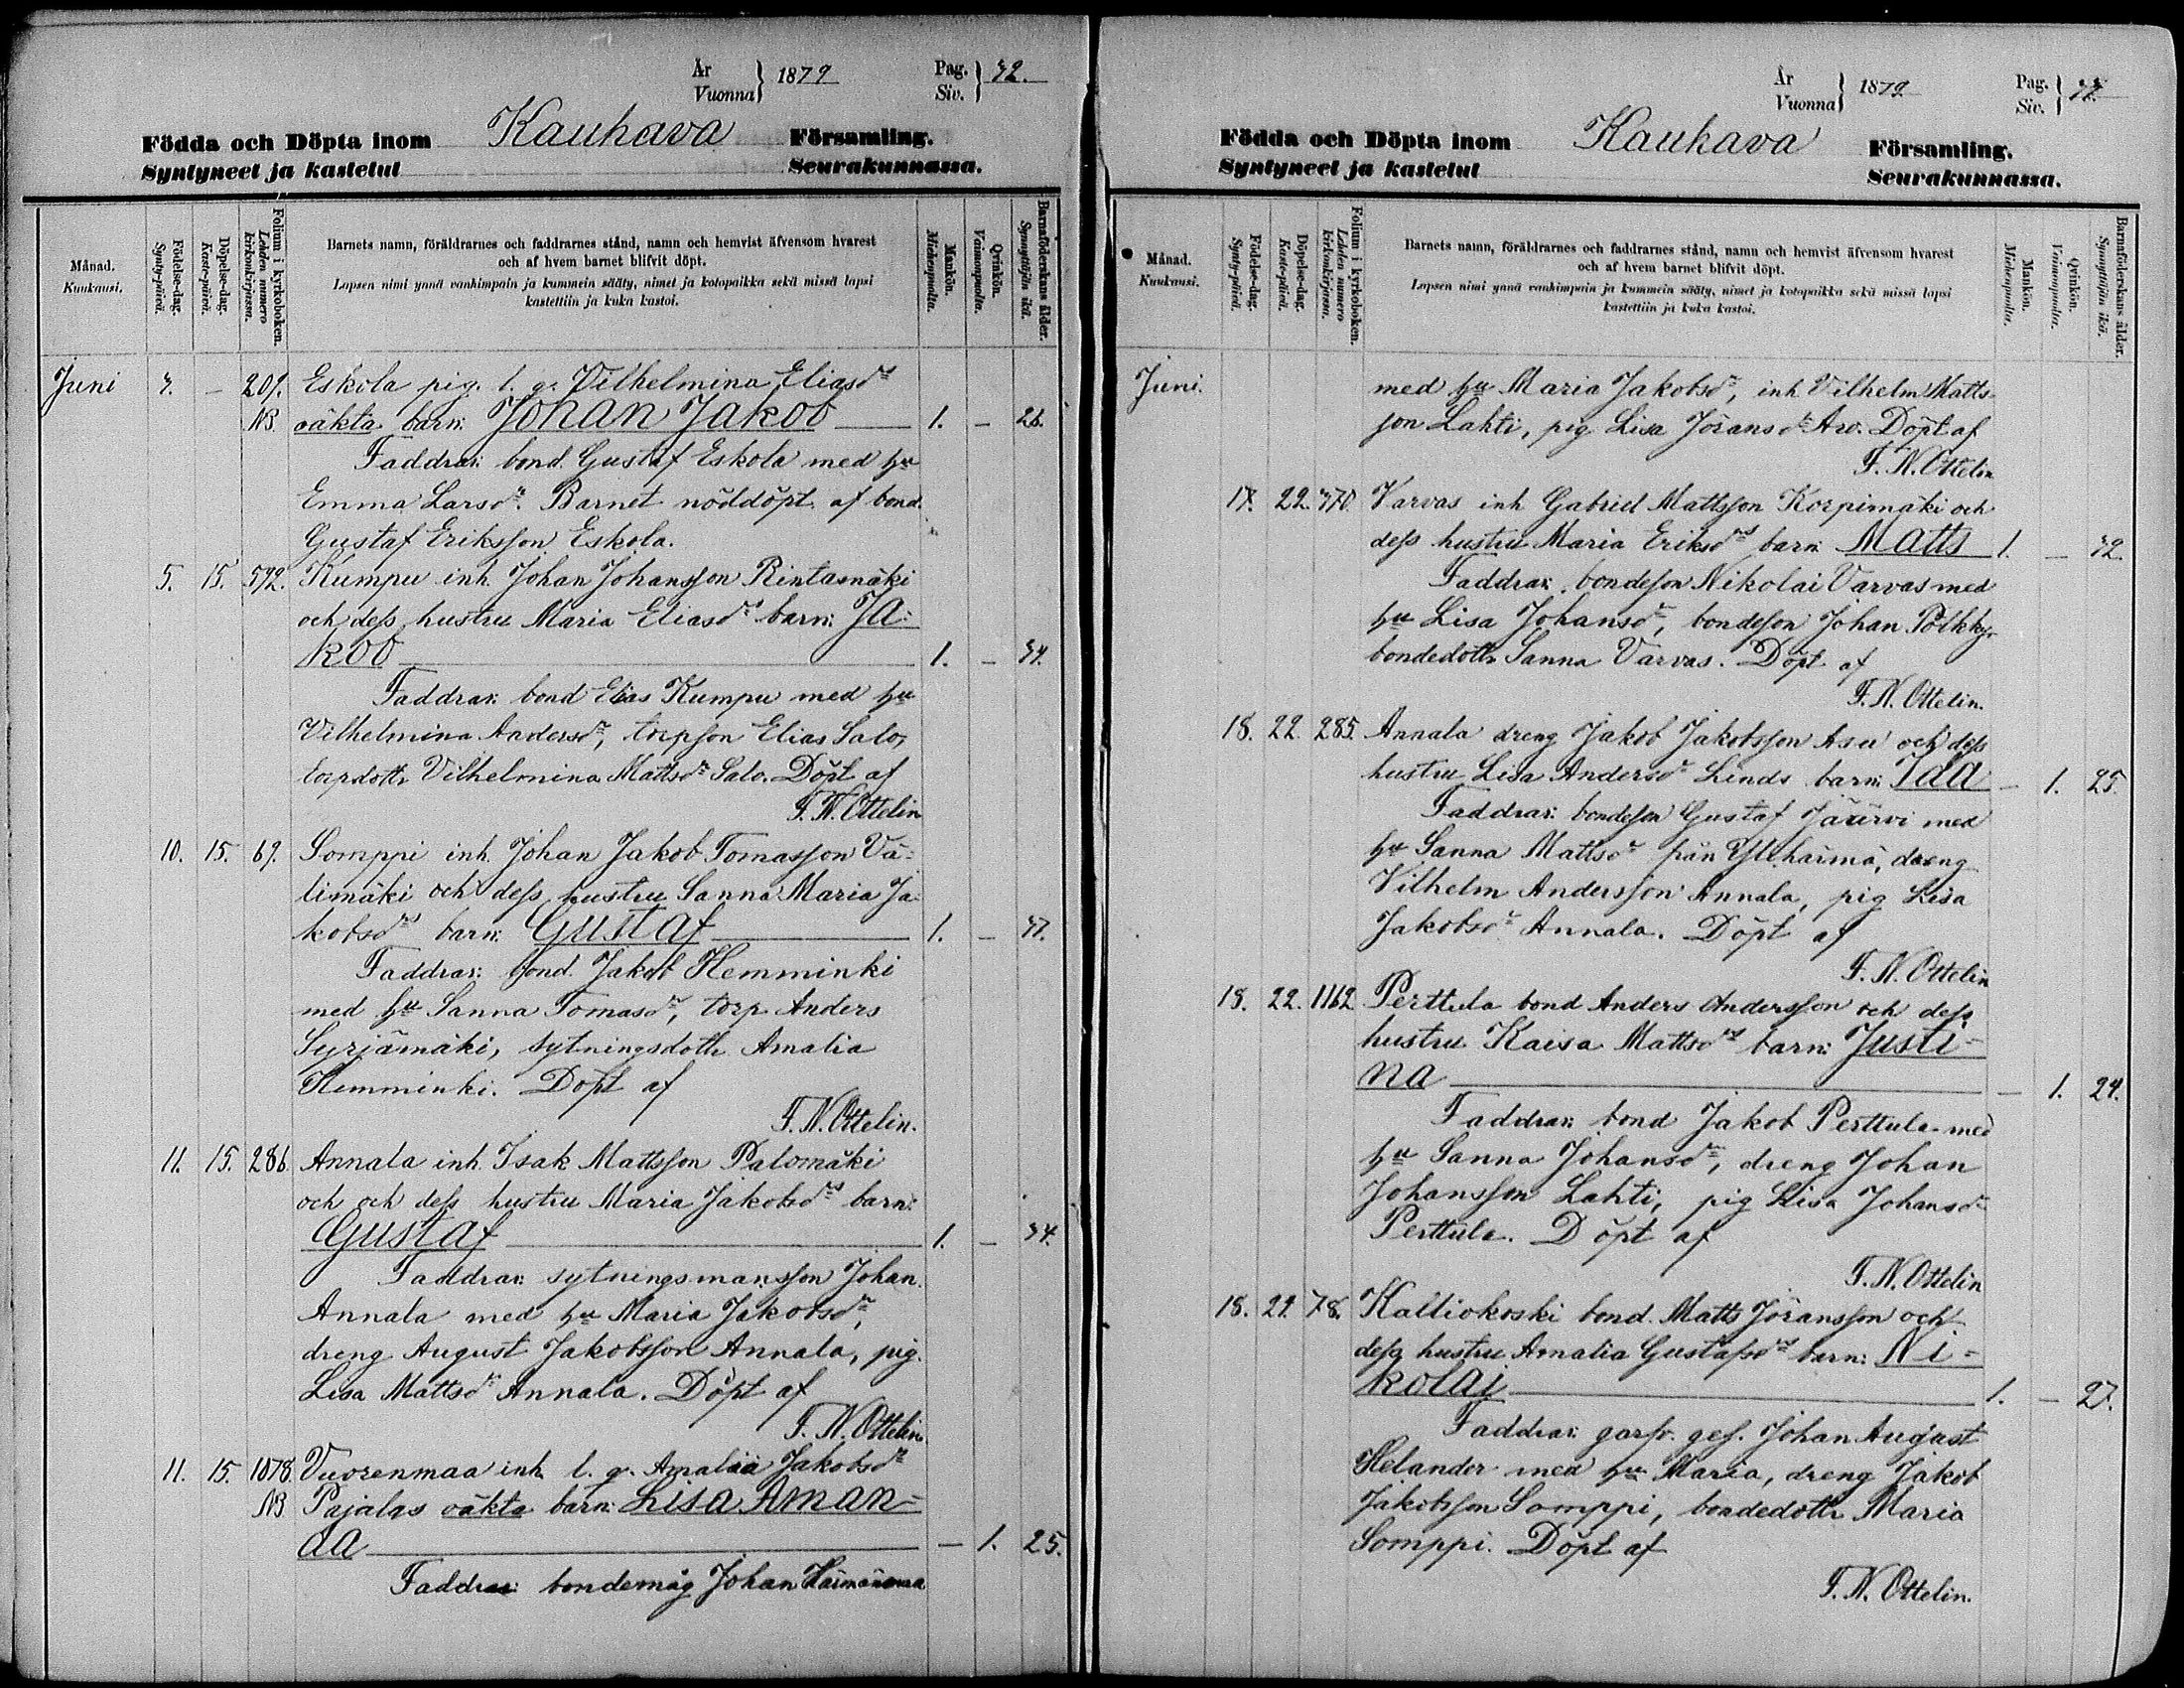 År
Vuonna } 1879 Pag.
Siv. } 32.
Födda och Döpta inom Kauhava Församling.
Syntyneet ja kastetut Seurakunnassa.
Månad.
Kuukausi.
Födelse-dag.
Synty-päivä.
Döpelse-dag.
Kaste-päivä.
Folium i kyrkoboken.
Lehden numero kirkonkirjassa.
Barnets namn, föräldrarnes och faddrarnes stånd, namn och hemvist äfvensom hvarest
och af hvem barnet blifvit döpt.
Lapsen nimi ynnä vanhimpain ja kummein sääty, nimet ja kotopaikka sekä missä lapsi
kastettiin ja kuka kastoi.
Mankön.
Miehenpuolta.
Qvinkön.
Vaimonpuolta.
Barnaföderskans ålder.
Synnyttäjän ikä.
Juni 3. – 209. Eskola pig. l. q. Vilhelmina Eliasdrs
NB. oäkta barn: Johan Jakob 1. – 26.
Faddrar: bond. Gustaf Eskola med hu
Emma Larsdr. Barnet nöddöpt af bond.
Gustaf Eriksson Eskola.
5. 15. 592. Kumpu inh. Johan Johansson Rintamäki
och dess hustru Maria Eliasdrs barn: Ja-
kob 1. – 34.
Faddrar: bond Elias Kumpu med hu
Vilhelmina Andersdr, torpson Elias Salo,
torpdottr Vilhelmina Mattsdr Salo. Döpt af
F. N. Ottelin
10. 15. 69. Somppi inh. Johan Jakob Tomasson Vä-
limäki och dess hustru Sanna Maria Ja-
kobsdrs barn: Gustaf 1. – 37.
Faddrar: bond. Jakob Hemminki
med hu Sanna Tomasdr, torp. Anders
Syrjämäki, sytningsdottr Amalia
Hemminki. Döpt af
F. N. Ottelin.
11. 15. 286. Annala inh. Isak Mattsson Palomäki
och och dess hustru Maria Jakobsdrs barn:
Gustaf 1. – 34.
Faddrar: sytningsmansson Johan
Annala med hu Maria Jakobsdr,
dreng August Jakobsson Annala, pig.
Lisa Mattsdr Annala. Döpt af
F. N. Ottelin.
11. 15. 1078. Vuorenmaa inh. l. q. Amalia Jakobsdr
NB Pajalas oäkta barn: Lisa Aman-
da – 1. 25.
Faddrar: bondemåg Johan Härmänmaa
År
Vuonna } 1879. Pag.
Siv. }
Födda och Döpta inom Kauhava Församling.
Syntyneet ja kastetut Seurakunnassa.
Månad.
Kuukausi.
Födelse-dag.
Synty-päivä.
Döpelse-dag.
Kaste-päivä.
Folium i kyrkoboken.
Lehden numero kirkonkirjassa.
Barnets namn, föräldrarnes och faddrarnes stånd, namn och hemvist äfvensom hvarest
och af hvem barnet blifvit döpt.
Lapsen nimi ynnä vanhimpain ja kummein sääty, nimet ja kotopaikka sekä missä lapsi
kastettiin ja kuka kastoi.
Mankön.
Miehenpuolta.
Qvinkön.
Vaimonpuolta.
Barnaföderskans ålder.
Synnyttäjän ikä.
Juni. med hu Maria Jakobsdr, inh. Vilhelm Matts-
son Lahti, pig Lisa Jöransdr Aro. Döpt af
F. N. Ottelin
17. 22. 370. Varvas inh Gabriel Mattsson Korpimäki och
dess hustru Maria Eriksdrs barn: Matts 1. – 32.
Faddrar: bondeson Nikolai Varvas med
hu Lisa Johansdr, bondeson Johan Pölkky,
bondedottr Sanna Varvas. Döpt af
F. N. Ottelin.
18. 22. 285. Annala dreng Jakob Jakobsson Asu och dess
hustru Lisa Andersdr Linds barn: Ida – 1. 25.
Faddrar: bondeson Gustaf Järvi med
hu Sanna Mattsdr från Ylihärmä, dreng
Vilhelm Andersson Annala, pig Lisa
Jakobsdr Annala. Döpt af
F. N. Ottelin
18. 22. 1162. Perttula bond Anders Andersson och dess
hustru Kaisa Mattsdrs barn: Justi-
na – 1. 24.
Faddrar: bond Jakob Perttula med
hu Sanna Johansdr, dreng Johan
Johansson Lahti, pig Lisa Johansdr
Perttula. Döpt af
F. N. Ottelin
18. 29. 78. Kalliokoski bond. Matts Jöransson och
dess hustru Amalia Gustafsdrs barn: Ni-
kolai 1. – 27.
Faddrar: garfv. ges. Johan August
Helander med hu Maria, dreng Jakob
Jakobsson Somppi, bondedottr Maria
Somppi. Döpt af
F. N. Ottelin.